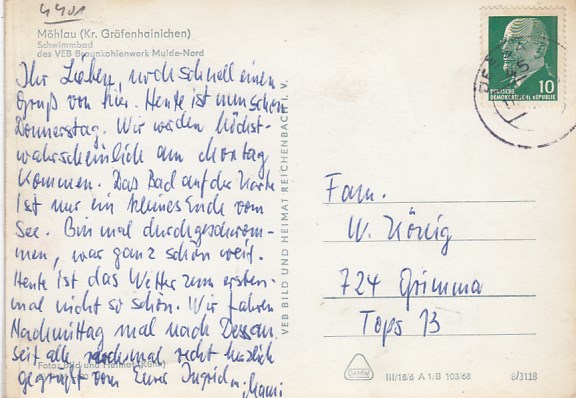 4401
Möhlau (Kr. Gräfenhainichen)
Schwimmbad
des VEB Braunkohlenwerk Mulde-Nord
Ihr Lieben, noch schnell einen
Gruß von hier. Heute ist nun schon
Donnerstag. Wir werden höchst-
wahrscheinlich am Montag
kommen. Das Bad auf der Karte
ist nur ein kleines Ende vom
See. Bin mal durchgeschwom-
men, war ganz schön weit.
Heute ist das Wetter zum ersten-
mal nicht so schön. Wir fahren
Nachmittag mal nach Dessau.
Seit alle nochmal recht herzlich
gegrüßt von Eurer Ingrid u. Mani
Foto: Bild und Heimat
VEB BILD UND HEIMAT REICHENBACH I. V.
10
DEUTSCHE
DEMOKRATISCHE REPUBLIK
Fam.
W. König
724 Grimma
Tops 13
III/18/6 A 1/B 103/68
8/3118